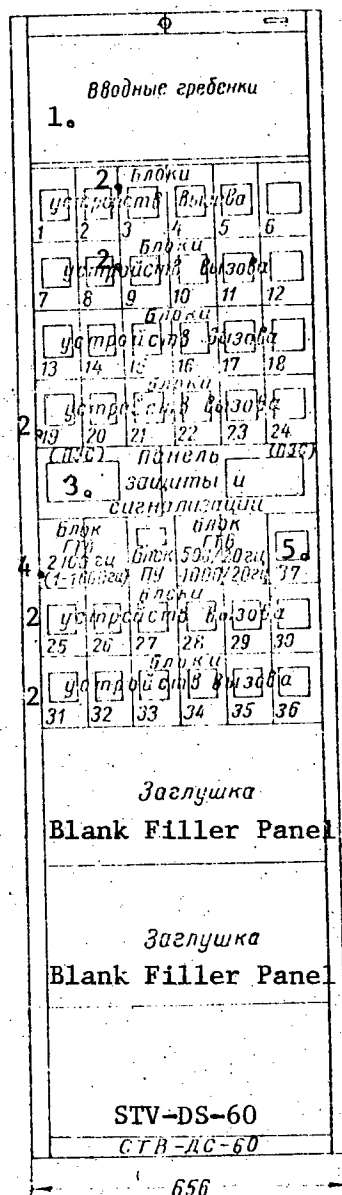 Вводные гребенки
1.
2 Блоки
устройств вызова
1 2 3 4 5 6
2 Блоки
устройств вызова
7 8 9 10 11 12
Блоки
устройств вызова
13 14 15 16 17 18
Блоки
устройств вызова
2 19 20 21 22 23 24
Панель
3. защиты и
сигнализации
Блок ГТВ Блок ГТВ
2100 гц Блок 500/20гц 5.
4 ПУ 1000/20гц 37
Блоки
2 устройств вызова
25 26 27 28 29 30
Блоки
2 устройств вызова
31 32 33 34 35 36
Заглушка
Blank Filler Panel
Заглушка
Blank Filler Panel
STV-DS-60
СТВ-ДС-60
656